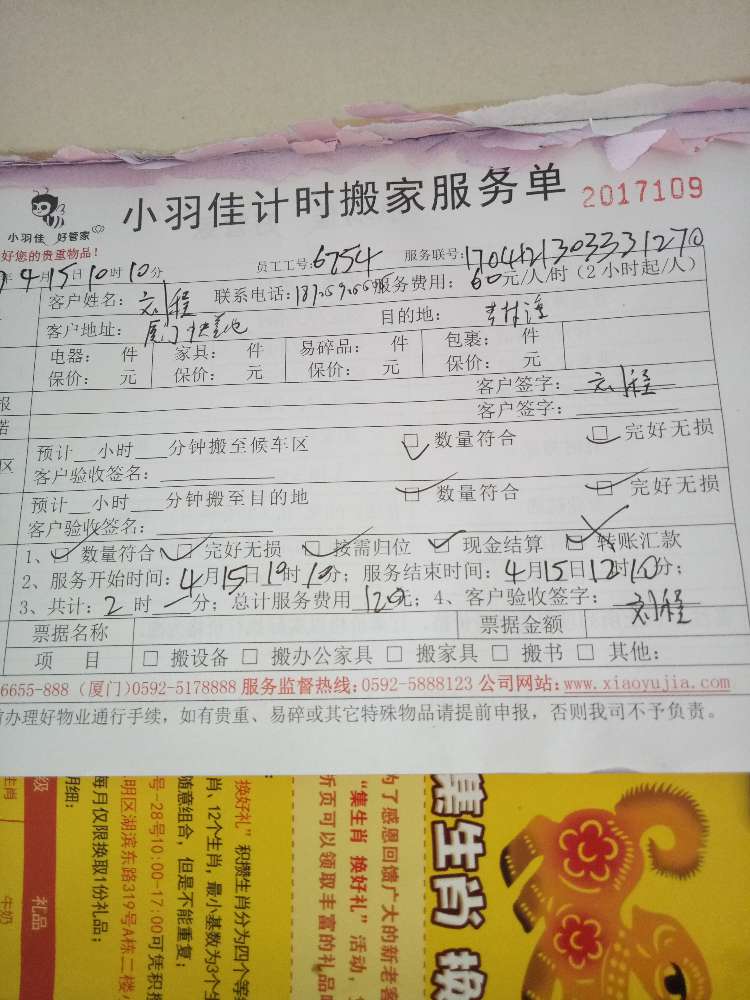 小羽佳 好管家
小羽佳计时搬家服务单 2017109
好您的贵重物品!
4月15日10时10分 员工工号:6754 服务联号:
客户姓名:刘程 联系电话: 服务费用:60元/人/时(2小时起/人)
客户地址:厦门 目的地:
电器: 件 家具: 件 易碎品: 件 包裹: 件
保价: 元 保价: 元 保价: 元 保价: 元
报 客户签字:刘程
若 客户签字:
预计__小时___分钟搬至候车区 □ 数量符合 □ 完好无损
区 客户验收签名:
预计__小时___分钟搬至目的地 □ 数量符合 □ 完好无损
客户验收签名:
1、□ 数量符合 □ 完好无损 □ 按需归位 □ 现金结算 □ 转账汇款
2、服务开始时间:4月15日10时10分;服务结束时间:4月15日12时10分;
3、共计:2时一分;总计服务费用120元;4、客户验收签字:刘程
票据名称 票据金额
项 目 □ 搬设备 □ 搬办公家具 □ 搬家具 □ 搬书 □ 其他:
6655-888 (厦门)0592-5178888 服务监督热线:0592-5888123 公司网站:www.xiaoyujia.com
前办理好物业通行手续,如有贵重、易碎或其它特殊物品请提前申报,否则我司不予负责。
集生肖 换
为了感恩回馈广大的新老客
“集生肖 换好礼”活动,
折页可以领取丰富的礼品
换好礼”积攒生肖分为四个等
肖、12个生肖,最小基数为3个生
随意组合,但是不能重复;
号-28号10:00-17:00可凭积
明区湖滨东路319号A栋二楼
每月仅限换取1份礼品;
明细:
级 礼品
生肖 牛奶